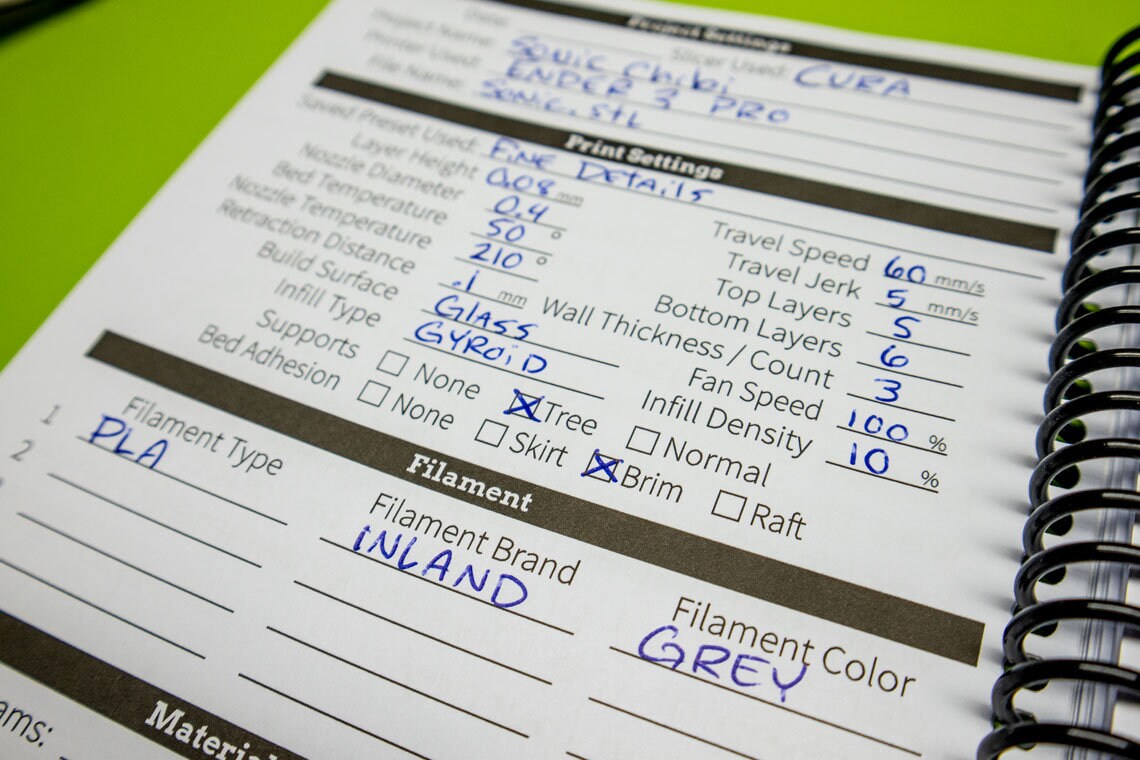 Project Settings
Date:
Project Name: Sonic Chibi Slicer Used: CURA
Printer Used: ENDER 3 PRO
File Name: Sonic.stl
Print Settings
Saved Preset Used: Fine Details
Layer Height 0.08 mm Travel Speed 60 mm/s
Nozzle Diameter 0.4 Travel Jerk 5 mm/s
Bed Temperature 50 ° Top Layers 5
Nozzle Temperature 210 ° Bottom Layers 6
Retraction Distance .1 mm Wall Thickness / Count 3
Build Surface GLASS Fan Speed 100 %
Infill Type GYROID Infill Density 10 %
Supports None Tree Normal
Bed Adhesion None Skirt Brim Raft
Filament
Filament Type Filament Brand Filament Color
1 PLA INLAND GREY
2
Materia
ams: